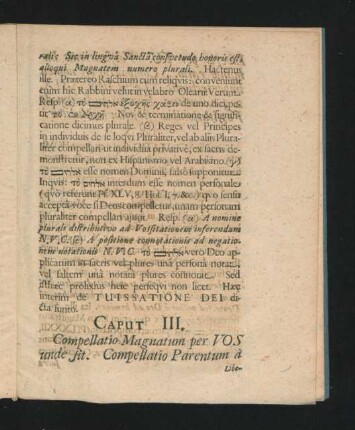 ralis; Sic in lingvâ Sanctâ consvetudo honoris est,
alloqui Magnatem numero plurali. Hactenus
ille. Prætereo Raschium cum reliqvis: conveniunt
enim hic Rabbini velut in vylabro Olearii Verum.
Resp. (α) אלהים τὸ ἐξοχῆς χάριν de uno dici, pe-
tur τὸ Nos de terminatione de signifi-
catione dicimus plurale. (β) Reges vel Principes
in individuis de se loqvi Pluraliter, vel ab aliis Plura-
liter compellari ut individua privative, ex sacris de-
monstretur, non ex Hispanismo vel Arabismo. (γ)
τὸ אלהים esse nomen Domini, falso supponitur.
Inqvis: τὸ אלהים interdum esse nomen personale
(qvò referunt Ps. XLV, 8. Hos. I, 7. &c.) qvo sensu
acceptâ voce si Deus compelletur, unam personam
pluraliter compellari ajunt. Resp. (α) A nomine
plurali distributivo ad Vossitationem inferendum
N. V. C. (β) A positione connotationis ad negatio-
nem notationis N. V. C. τὸ אלהים vero Deo ap-
plicatum in sacris vel plures unâ personâ notat,
vel saltem unâ notatâ plures connotat. Sed
isthæc prolixius heic perseqvi non licet. Hæc
interim de TUISSATIONE DEI di-
cta sunto.
CAPUT III.
Compellatio Magnatum per VOS
unde sit. Compellatio Parentum à
Libe-